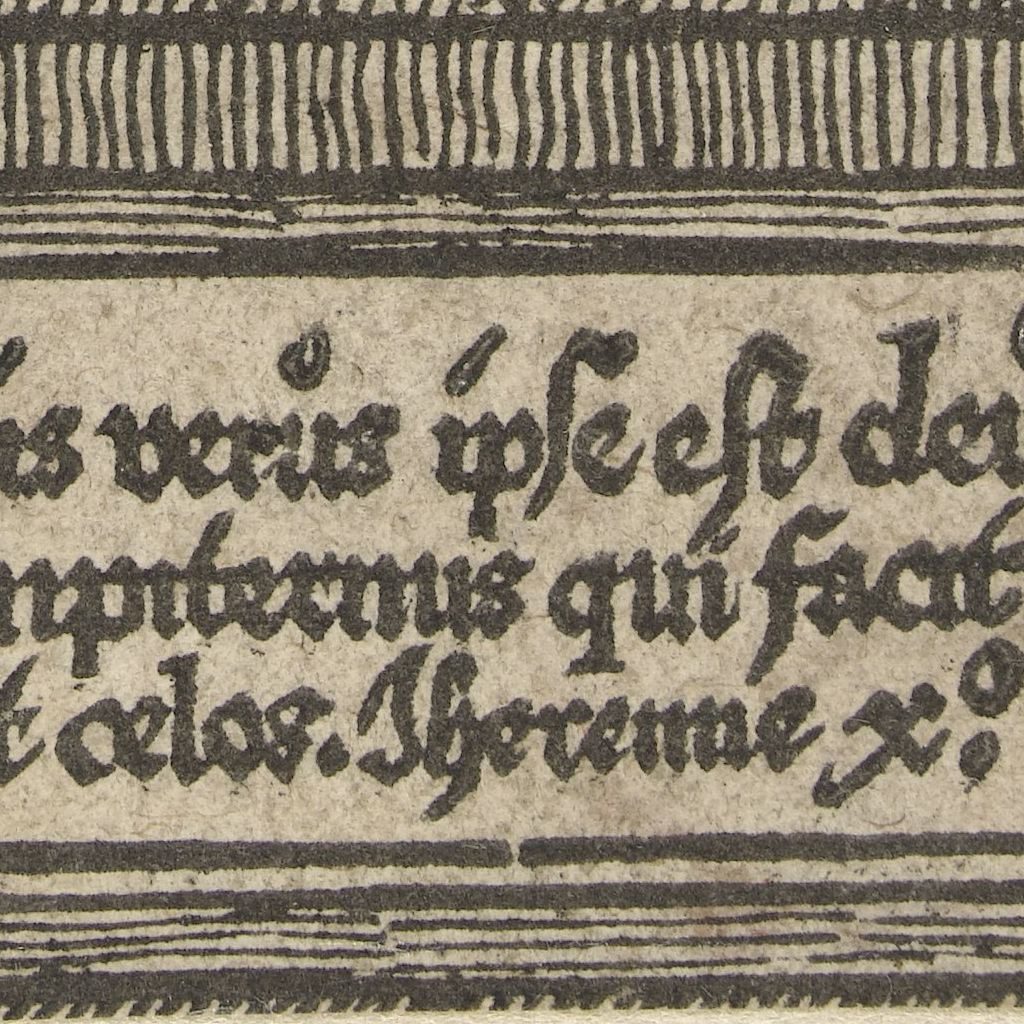 us verus ipse est deu
mpiternus qui facit
t celos. Jheremie x.º